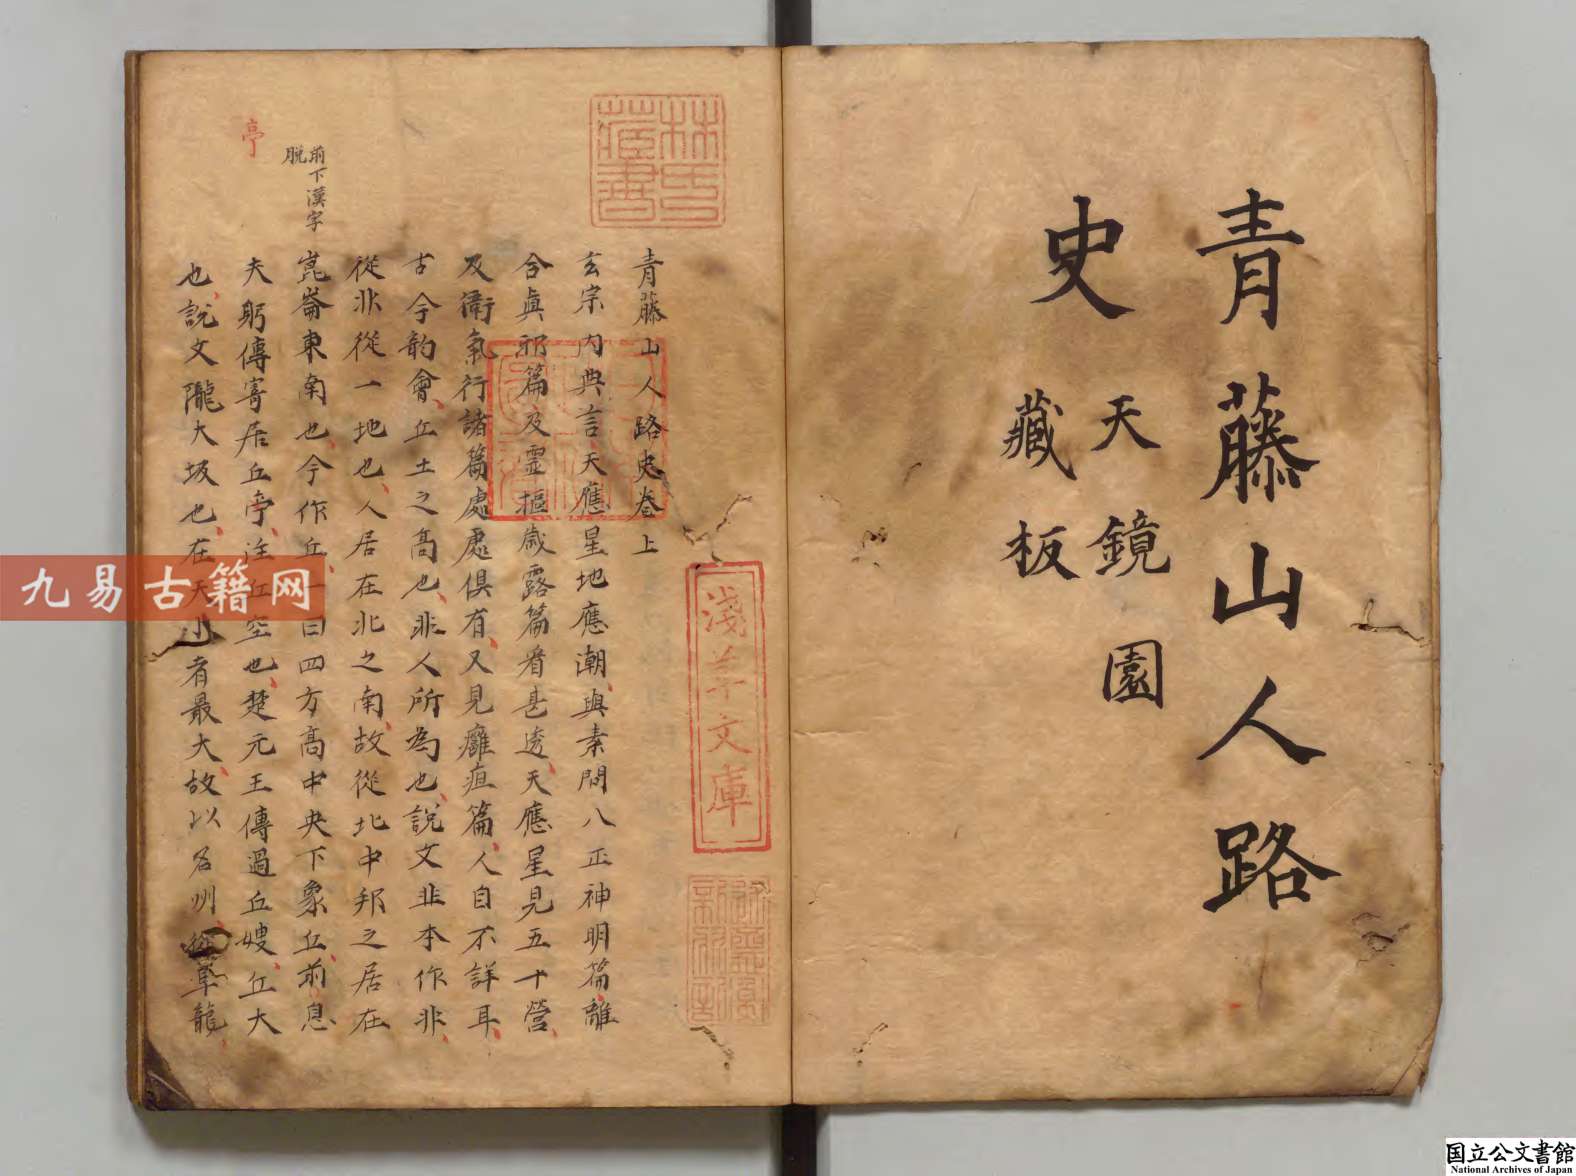 青藤山人路
史
天鏡園
藏板
林氏藏書
淺草文庫
青藤山人路史卷上
玄宗內典言天應星地應潮與素問八正神明篇離
合眞邪篇及霊樞歲露篇看甚透天應星見五十營
及衛氣行諸篇處處俱有又見癰疽篇人自不詳耳
古今韵會丘土之高也非人所為也說文丠本作丠
從北從一地也人居在北之南故從北中邦之居在
崑崙東南也今作丘一曰四方高中央下象丘前息
夫躬傳寄居丘亭注丘空也楚元王傳過丘嫂丘大
也說文隴大坂也在天水者最大故以名州從阜龍
前下漢字
脫
亭
九易古籍网
国立公文書館
National Archives of Japan